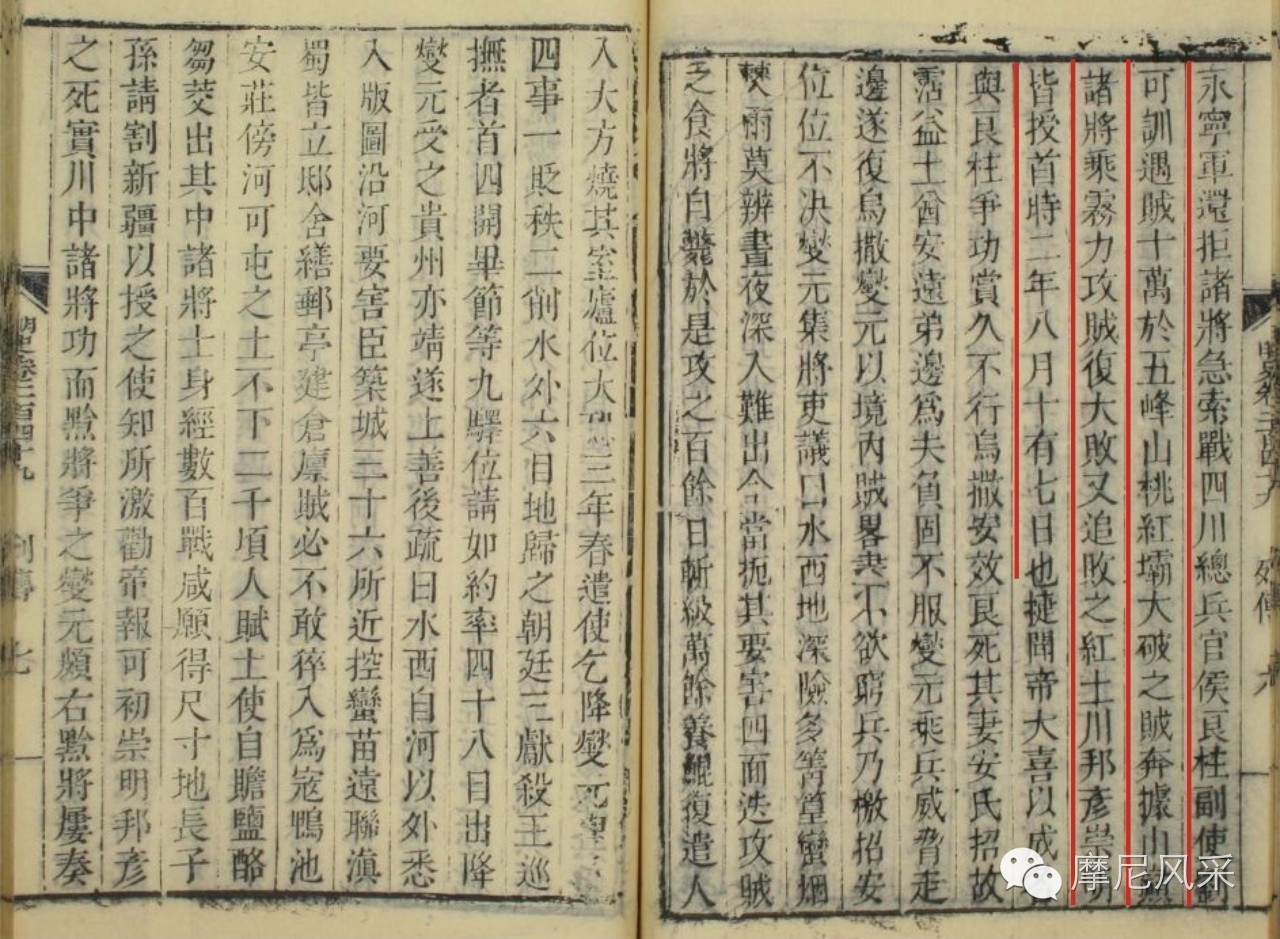 明史卷二百四十九 列傳 六
永寧軍還拒諸將急索戰四川總兵官侯良柱副使劉
可訓遇賊十萬於五峰山桃紅壩大破之賊奔據山
諸將乘霧力攻賊復大敗又追敗之紅土川邦彥崇明
皆授首時二年八月十有七日也捷聞帝大喜以成
與良柱爭功賞久不行烏撒安效良死其妻安氏招故
霑益土酋安遠弟邊爲夫負固不服燮元乘兵威脅走
邊遂復烏撒燮元以境內賊畧盡不欲窮兵乃檄招安
位位不決燮元集將吏議曰水西地深險多箐篁蠻烟
僰雨莫辨晝夜深入難出今當扼其要害四面迭攻賊
乏食將自斃於是攻之百餘日斬級萬餘養鯤復遣人
入大方燒其室廬位大恐三年春遣使乞降燮元
四事一貶秩二削水外六目地歸之朝廷三獻殺王巡
撫者首四開畢節等九驛位請如約率四十八目出降
燮元受之貴州亦靖遂上善後疏曰水西自河以外悉
入版圖沿河要害臣築城三十六所近控蠻苗遠聯滇
蜀皆立邸舍繕郵亭建倉廩賊必不敢猝入爲寇鴨池
安莊傍河可屯之土不下二千頃人賦土使自贍鹽酪
芻茭出其中諸將士身經數百戰咸願得尺寸地長子
孫請割新疆以授之使知所激勸帝報可初崇明邦彥
之死實川中諸將功而黔將爭之燮元頗右黔將屢奏
明史卷二百四十九 列傳 七
摩尼风采